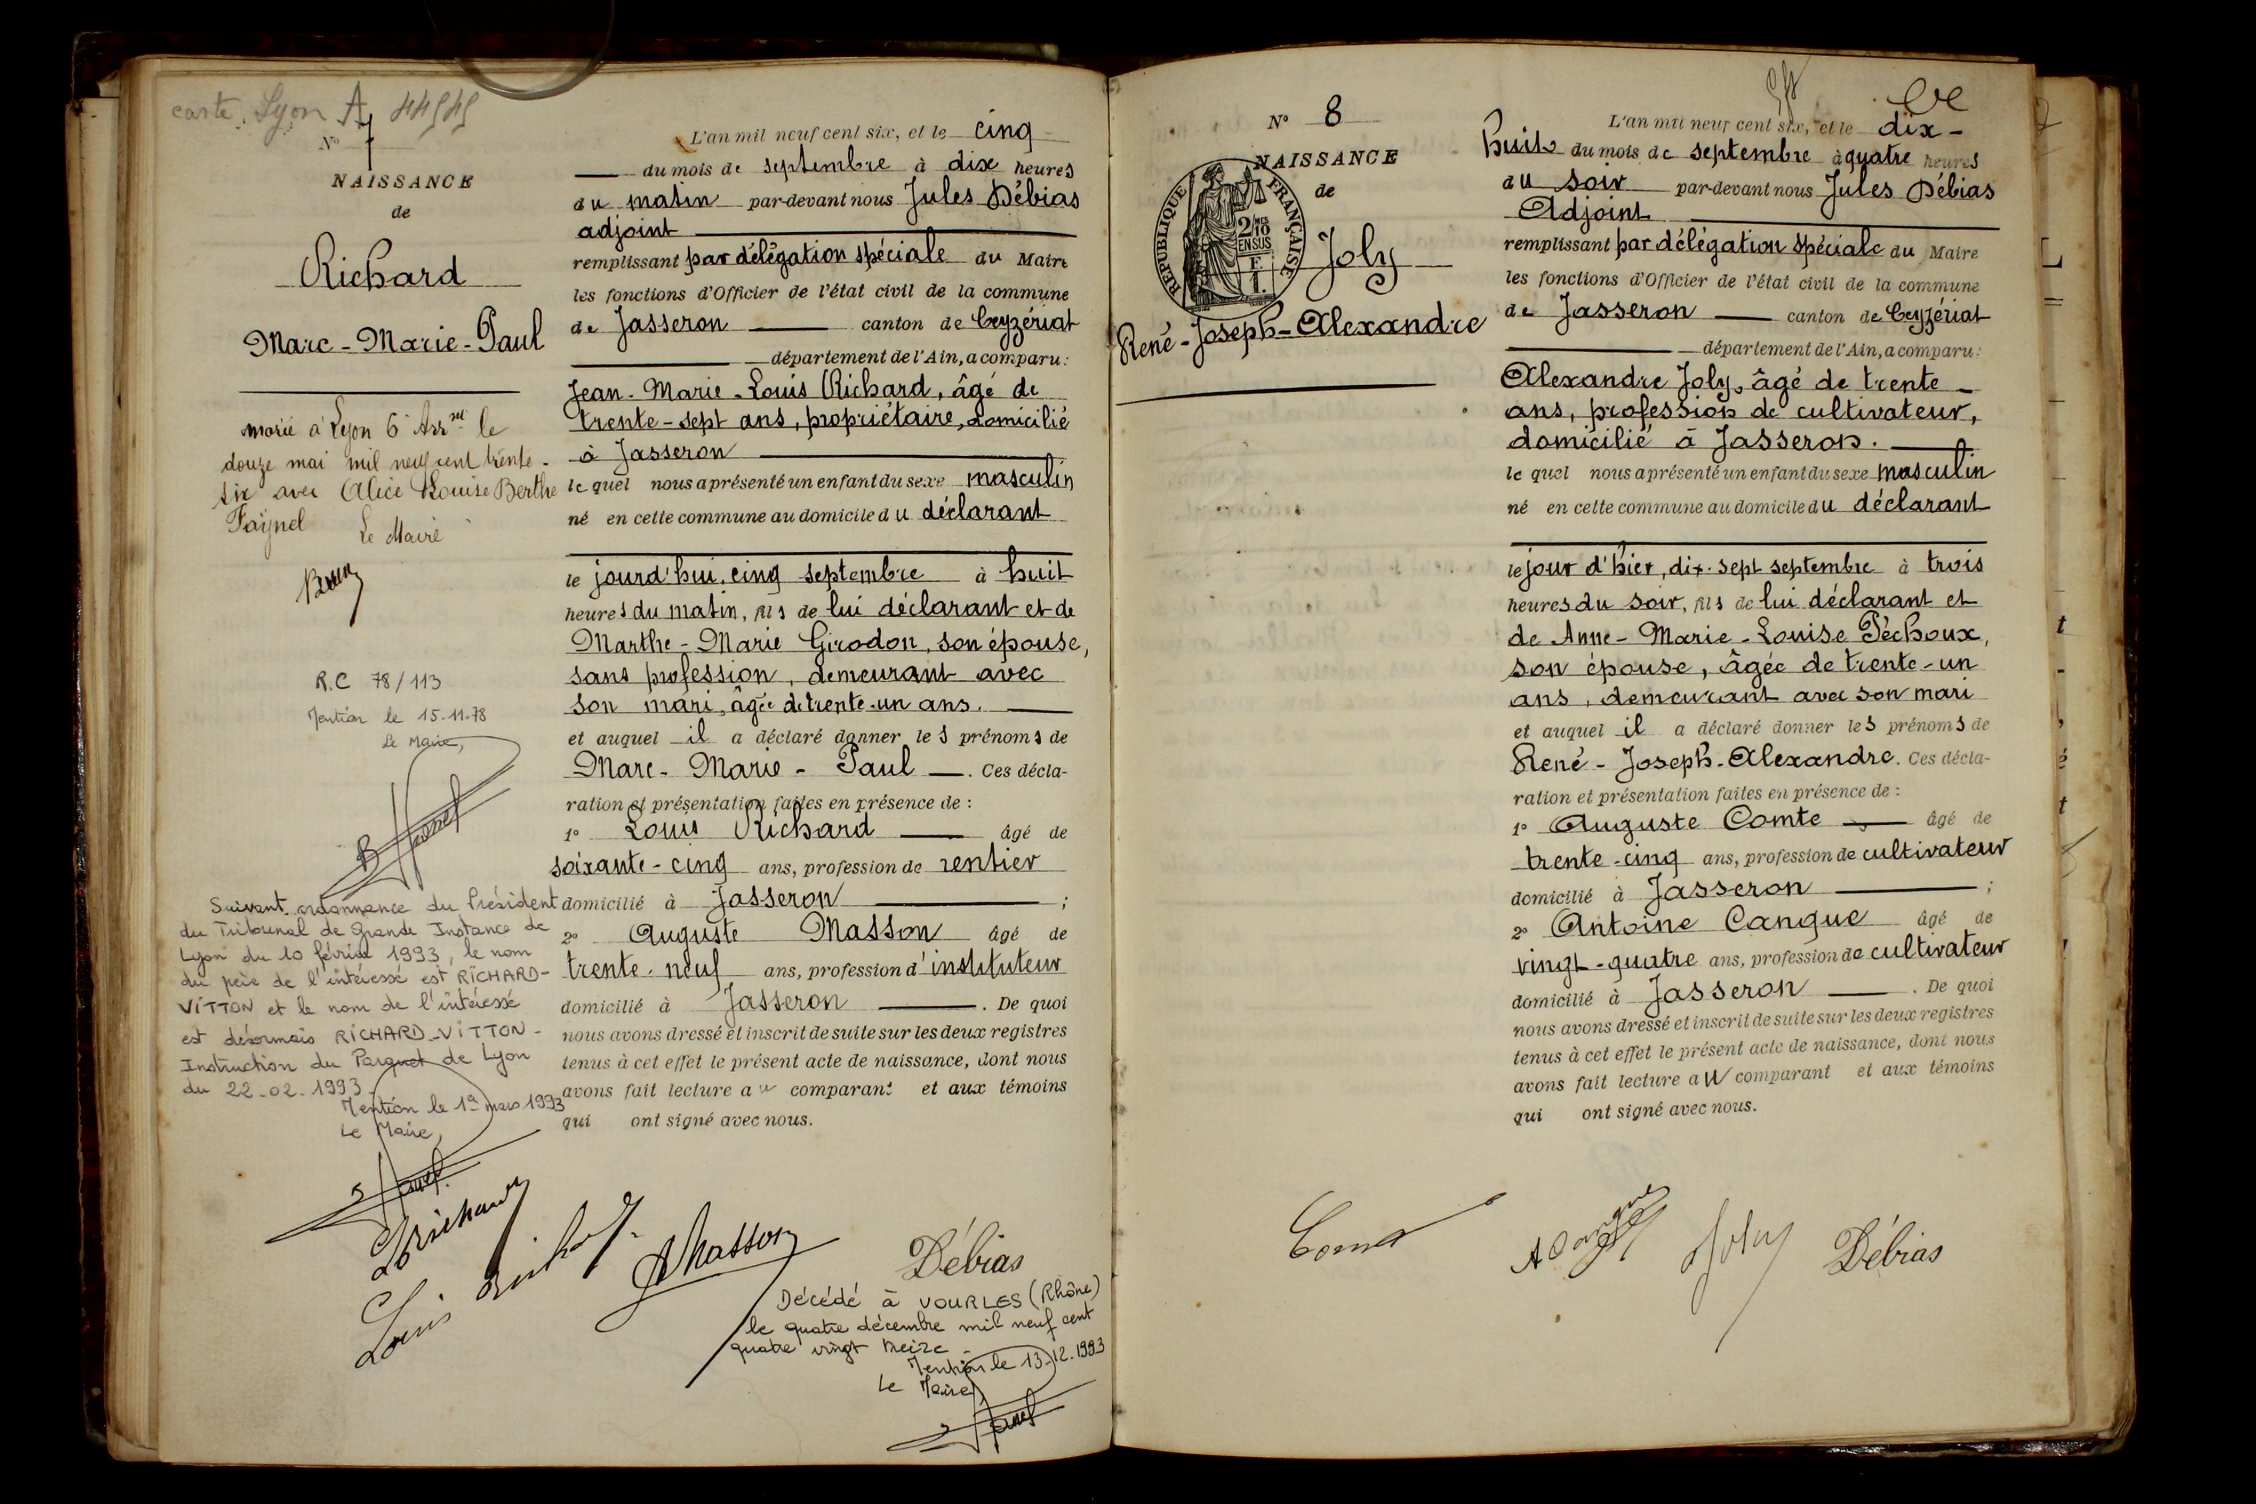 carte Lyon A
N° 7
NAISSANCE
de
Richard
Marc-Marie-Paul
marié à Lyon 6e Arr.nt le
douze mai mil neuf cent trente-
six avec Alice Louise Berthe
Faynel Le Maire
R.C 78/113
Mention le 15-11-78
Le Maire,
Suivant ordonnance du Président
du Tribunal de Grande Instance de
Lyon du 10 février 1993, le nom
du père de l'intéressé est RICHARD-
VITTON et le nom de l'intéressé
est désormais RICHARD-VITTON-
Instruction du Parquet de Lyon
du 22-02-1993
Mention le 1er mars 1993
Le Maire,
L'an mil neuf cent six, et le cinq
du mois de septembre à dix heures
du matin par-devant nous Jules Débias
adjoint
remplissant par délégation spéciale du Maire
les fonctions d'Officier de l'état civil de la commune
de Jasseron canton de Ceyzériat
département de l'Ain, a comparu:
Jean-Marie-Louis Richard, âgé de
trente-sept ans, propriétaire, domicilié
à Jasseron
lequel nous a présenté un enfant du sexe masculin
né en cette commune au domicile du déclarant
le jourd'hui, cinq septembre à huit
heures du matin, fils de lui déclarant et de
Marthe-Marie Girodon, son épouse,
sans profession, demeurant avec
son mari, âgée de trente-un ans.
et auquel il a déclaré donner les prénoms de
Marc-Marie-Paul. Ces décla-
ration et présentation faites en présence de:
1° Louis Richard âgé de
soixante-cinq ans, profession de rentier
domicilié à Jasseron ;
2° Auguste Masson âgé de
trente-neuf ans, profession d'instituteur
domicilié à Jasseron . De quoi
nous avons dressé et inscrit de suite sur les deux registres
tenus à cet effet le présent acte de naissance, dont nous
avons fait lecture au comparant et aux témoins
qui ont signé avec nous.
LRichard
Louis Richard
AMasson
Débias
Décédé à VOURLES (Rhône)
le quatre décembre mil neuf cent
quatre vingt treize -
Mention le 13-12-1993
Le Maire,
N° 8
NAISSANCE
de
RÉPUBLIQUE FRANÇAISE
2/10
EN SUS
Joly
René-Joseph-Alexandre
L'an mil neuf cent six, et le dix-
huit du mois de septembre à quatre heures
du soir par-devant nous Jules Débias
Adjoint
remplissant par délégation spéciale du Maire
les fonctions d'Officier de l'état civil de la commune
de Jasseron canton de Ceyzériat
département de l'Ain, a comparu:
Alexandre Joly, âgé de trente-
ans, profession de cultivateur,
domicilié à Jasseron.
lequel nous a présenté un enfant du sexe masculin
né en cette commune au domicile du déclarant
le jour d'hier, dix-sept septembre à trois
heures du soir, fils de lui déclarant et
de Anne-Marie-Louise Péchoux,
son épouse, âgée de trente-un
ans, demeurant avec son mari
et auquel il a déclaré donner les prénoms de
René-Joseph-Alexandre. Ces décla-
ration et présentation faites en présence de:
1° Auguste Comte âgé de
trente-cinq ans, profession de cultivateur
domicilié à Jasseron ;
2° Antoine Cangue âgé de
vingt-quatre ans, profession de cultivateur
domicilié à Jasseron . De quoi
nous avons dressé et inscrit de suite sur les deux registres
tenus à cet effet le présent acte de naissance, dont nous
avons fait lecture au comparant et aux témoins
qui ont signé avec nous.
Comte
A Cangue
Joly
Débias